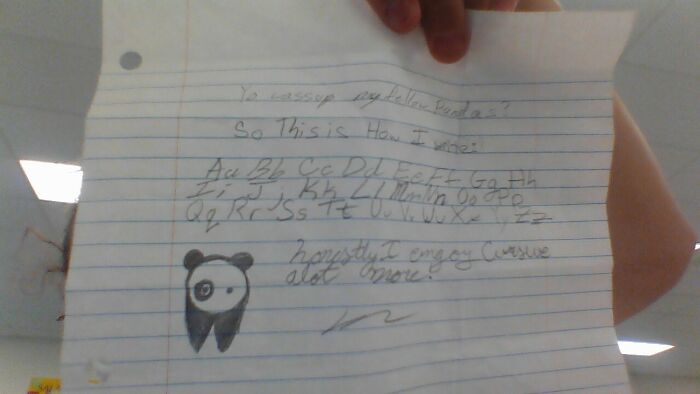 Yo wassup my fellow Pandas?
So This is How I write:
Aa Bb Cc Dd Ee Ff Gg Hh
Ii Jj Kk Ll Mm Nn Oo Pp
Qq Rr Ss Tt Uu Vv Ww Xx Yy Zz
honestly I emgoy Cursive
alot more!